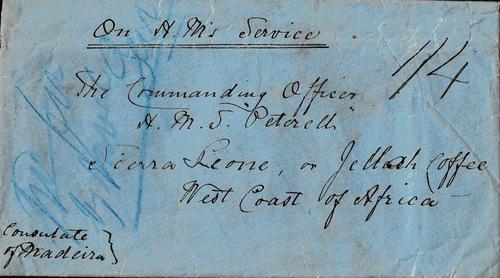 On H. M's Service
1/4
The Commanding Officer
H. M. S. "Peterell"
Sierra Leone, or Jellah Coffee
West Coast of Africa
Consulate
of Madeira